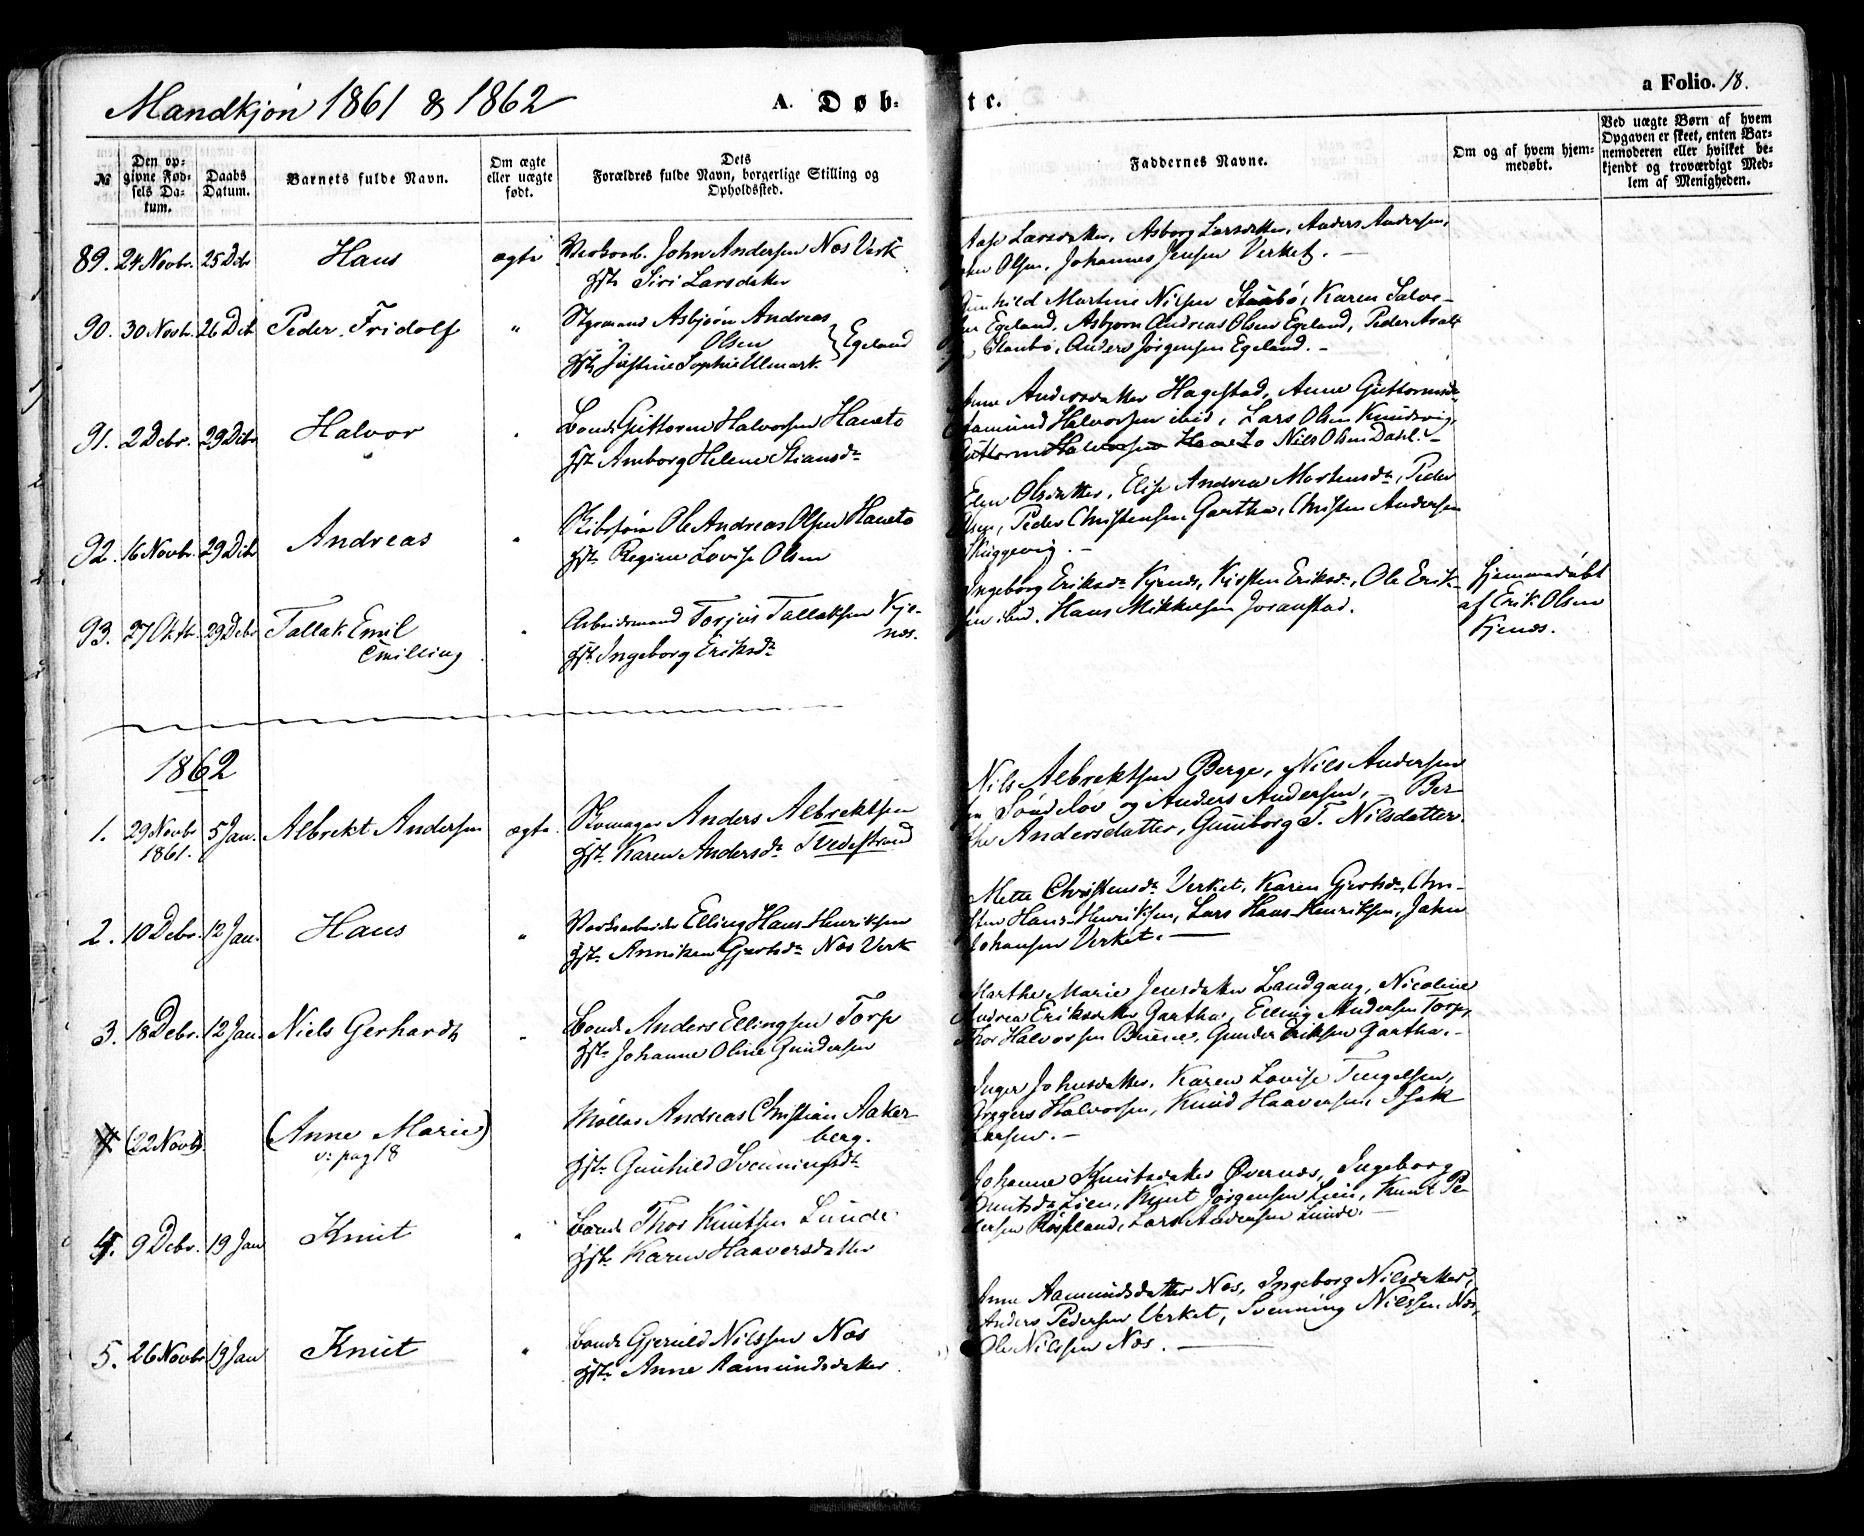 Mandkjön 1861 & 1862
A. Døb-
te.
a Folio. 18.
№
Den op-
givne Fød-
sels Da-
tum.
Daabs
Datum.
Barnets fulde Navn.
Om ægte
eller uægte
født.
Dets
Forældres fulde Navn, borgerlige Stilling og
Opholdssted.
Faddernes Navne.
Om og af hvem hjem-
medøbt.
Ved uægte Børn af hvem
Opgaven er skeet, enten Bar-
nemoderen eller hvilket be-
kjendt og troværdigt Med-
lem af Menigheden.
89. 24 Novbr. 25 Dcbr Hans ægte John Andersen Næs Verk
Siri Larsdatter
Aase Larsdatter, Asborg Larsdatter, Anders Andersen,
Olsen, Johannes Jensen Verket. –
90. 30 Novbr. 26 Dcbr Peder Fridolf " Styrmand Asbjørn Andreas
Olsen } Egeland
Justine Sophie Ulmark
Gunhild Martine Nilsen Staubø, Karen Salve-
Egeland, Asbjørn Andreas Olsen Egeland, Peder
Staubø, Anders Jørgensen Egeland. –
91. 2 Debr. 29 Dcbr Halvor " Bonde Guttorm Halvorsen Haneto
Amborg Helene Stiansdr
Anne Andersdatter Hagestad, Anne Guttormsd.
Aamund Halvorsen ibid, Lars Olsen Knudsvig,
Guttorm Halvorsen Haneto Nils Olsen Dahl. –
92. 16 Novbr. 29 Dcbr Andreas " Ole Andreas Olsen Haneto
Regine Lovise Olsen
Elen Olsdatter, Elise Andrea Mortensdr, Peder
Olsen, Peder Christensen Gartha, Christen Andersen
Skuggevig. –
93. 27 Oktbr. 29 Debr Tallak Emil
Emilling
" Arbeidsmand Torjus Tallaksen Kje-
næs.
Ingeborg Eriksdr
Ingeborg Eriksdr Kjenæs, Kirsten Eriksdr, Ole Erik-
sen ibid. Hans Mikkelsen Joranstad.
hjemmedøbt
af Erik Olsen
Kjenæs.
1862
1. 29 Novbr 5 Jan. Albrekt Andersen ægte Skomager Anders Albrektsen
1861.
Karen Andersdr Tvedestrand
Nils Albrektsen Berge, Nils Andersen
Søndeløv og Anders Andersen, – Ber-
the Andersdatter, Gunborg T. Nilsdatter.
2. 10 Debr. 12 Jan. Hans " Verksarbeider Elling Hans Henriksen
Anniken Gjertsdr Næs Verk
Mette Christensdr Verket, Karen Gjertsdr, Chri-
sten Hans Henriksen, Lars Hans Henriksen, John
Johansen Verket. –
3. 18 Debr. 12 Jan. Niels Gerhardt " Bonde Anders Ellingsen Torp
Johanne Oline Gundersen
Marthe Marie Jensdatter Landgang, Nicoline
Andrea Eriksdatter Gartha, Elling Andersen Torp,
Thor Halvorsen Buene, Gunder Eriksen Gartha. –
(22 Novbr. (Anne Marie)
v: pag 18
Møller Andreas Christian Aaker-
berg.
Gunhild Svenningsdr
Inger Johnsdatter, Karen Lovise Tergelsen,
Gregers Halvorsen, Knud Haaversen, Isak
Larsen. –
4. 9 Debr. 19 Jan Knut " Bonde Thor Knutsen Lunde
Karen Haaversdatter
Johanne Knutsdatter Øvernæs, Ingeborg
Knutsdr Lien, Knut Jørgensen Lien, Knut Pe-
dersen Røsland, Lars Andersen Lunde. –
5. 26 Novbr 19 Jan Knut " Bonde Gjeruld Nilssen Næs
Anne Aamundsdatter
Anne Aamundsdatter Næs, Ingeborg Nilsdatter,
Anders Pedersen Verket, Svenning Nilssen Næs,
Ole Nilssen Næs. –